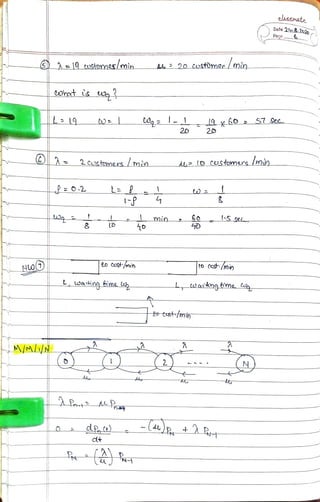 classmate
Date 24.8.2020
Page 6
⑤ λ = 19 customers/min μ = 20 customer/min
What is wq?
L = 19 W = 1 Wq = 1 - 1/20 = 19/20 × 60 = 57 sec
⑥ λ = 2 customers/min μ = 10 customers/min
ρ = 0.2 L = ρ/(1-ρ) = 1/4 w = 1/8
Wq = 1/8 - 1/10 = 1/40 min = 60/40 = 1.5 sec.
HW ⑦ 10 cust/min 10 cust/min
L, waiting time wq L, waiting time wq
10 cust/min
M/M/1/N
λ λ λ λ
0 1 2 .... N
μ μ μ μ
λ Pn-1 = μ Pn
0 = dPn(t)/dt = -(μ)PN + λ PN-1
PN = (λ/μ) PN-1